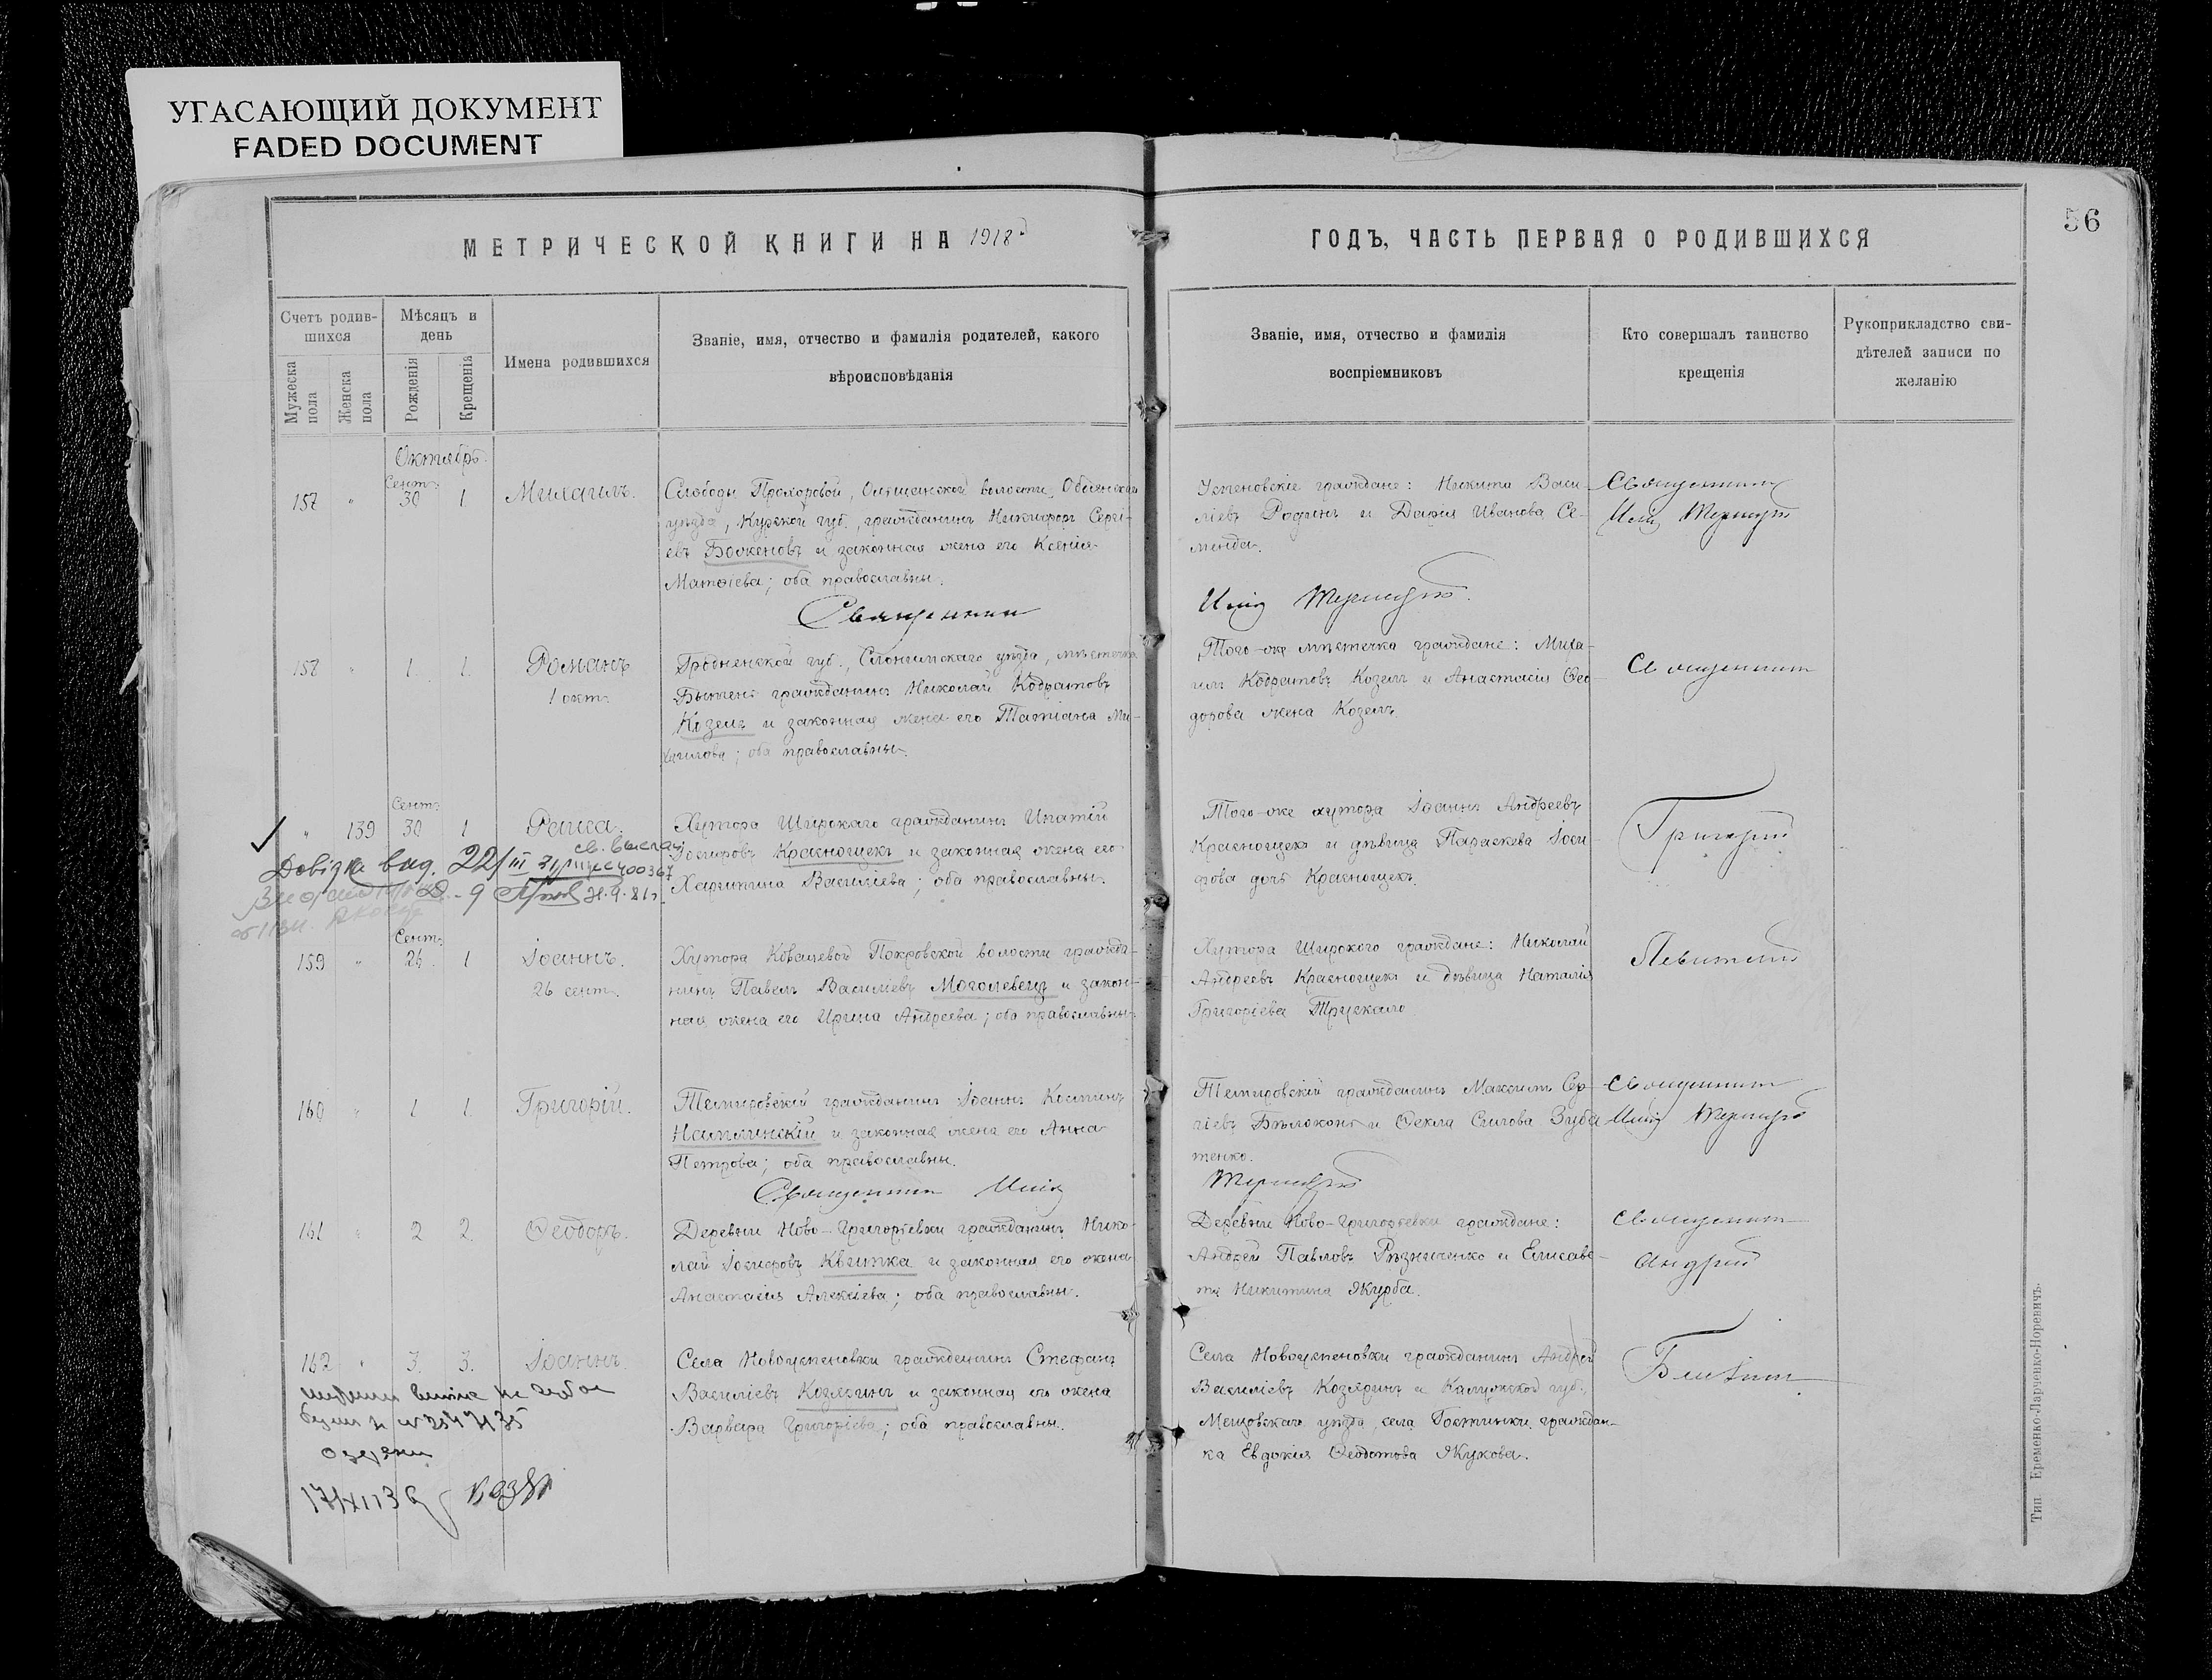 УГАСАЮЩИЙ ДОКУМЕНТ
FADED DOCUMENT
56
МЕТРИЧЕСКОЙ КНИГИ НА 1918
ГОДЪ, ЧАСТЬ ПЕРВАЯ О РОДИВШИХСЯ
Счетъ родив-
шихся
Мужеска
пола
Женска
пола
Мѣсяцъ и
день
Рожденія
Крещенія
Имена родившихся
Званіе, имя, отчество и фамилія родителей, какого
вѣроисповѣданія
Званіе, имя, отчество и фамилія
воспріемниковъ
Кто совершалъ таинство
крещенія
Рукоприкладство сви-
дѣтелей записи по
желанію
Октябрь
Сент.
157 " 30 1 Михаилъ.
Слободы Прохоровой, волости, Обоянскаго
уѣзда, Курской губ., гражданинъ Никифоръ Сергі-
евъ Боженовъ и законная жена его Ксенія
Матѳіева; оба православны.
Успеновскіе граждане: Никита Васи-
ліевъ Родинъ и Дарія Иванова Се-
менда.
Священник
Священник
158 " 1. 1. Романъ
1 окт.
Гродненской губ., Слонимскаго уѣзда, мѣстечка
Бытень гражданинъ Николай Кодратовъ
Козелъ и законная жена его Татіана Ми-
хаилова; оба православны.
Того-же мѣстечка граждане: Миха-
илъ Кодратовъ Козелъ и Анастасія Ѳео-
дорова жена Козелъ.
Священник
Сент.
" 139 30 1 Раиса.
Хутора Широкаго гражданинъ Игнатій
Іосифовъ Красногщекъ и законная жена его
Харитина Василіева; оба православны.
Того-же хутора Іоаннъ Андреевъ
Красногщекъ и дѣвица Параскева Іоси-
фова дочь Красногщекъ.
Григорий
Довідка вид. 22/III
Сент.
159 " 26 1 Іоаннъ.
26 сент.
Хутора Ковалевой Покровской волости гражда-
нинъ Павелъ Василіевъ Моголевецъ и закон-
ная жена его Ирина Андреева; оба православны.
Хутора Широкого граждане: Николай
Андреевъ Красногщекъ и дѣвица Наталія
Григоріева Трускало
Левитский
160 " 1 1. Григорій.
Темировскій гражданинъ Іоаннъ Костинъ
и законная жена его Анна
Петрова; оба православны.
Темировскій гражданинъ Максимъ Сер-
гіевъ Бѣлоконь и Ѳекла Зуба-
тенко.
Священник
Священник
161 " 2 2. Ѳеодоръ.
Деревни Ново-Григоріевки гражданинъ Нико-
лай Іосифовъ Квитка и законная его жена
Анастасія Алексіева; оба православны.
Деревни Ново-Григорьевки граждане:
Андрей Павловъ Рѣзниченко и Елисаве-
та Никитина Жкурба.
Священник
Андрий
162 " 3. 3. Іоаннъ.
Села Новоуспеновки гражданинъ Стефанъ
Василіевъ Козяринъ и законная его жена
Варвара Григоріева; оба православны.
Села Новоуспеновки гражданинъ Андрей
Василіевъ Козяринъ и Калужской губ.,
Мещовскаго уѣзда, села Гостинки граждан-
ка Евдокія Ѳеодотова Жукова.
Тип Еременко-Ларченко-Норевичъ.